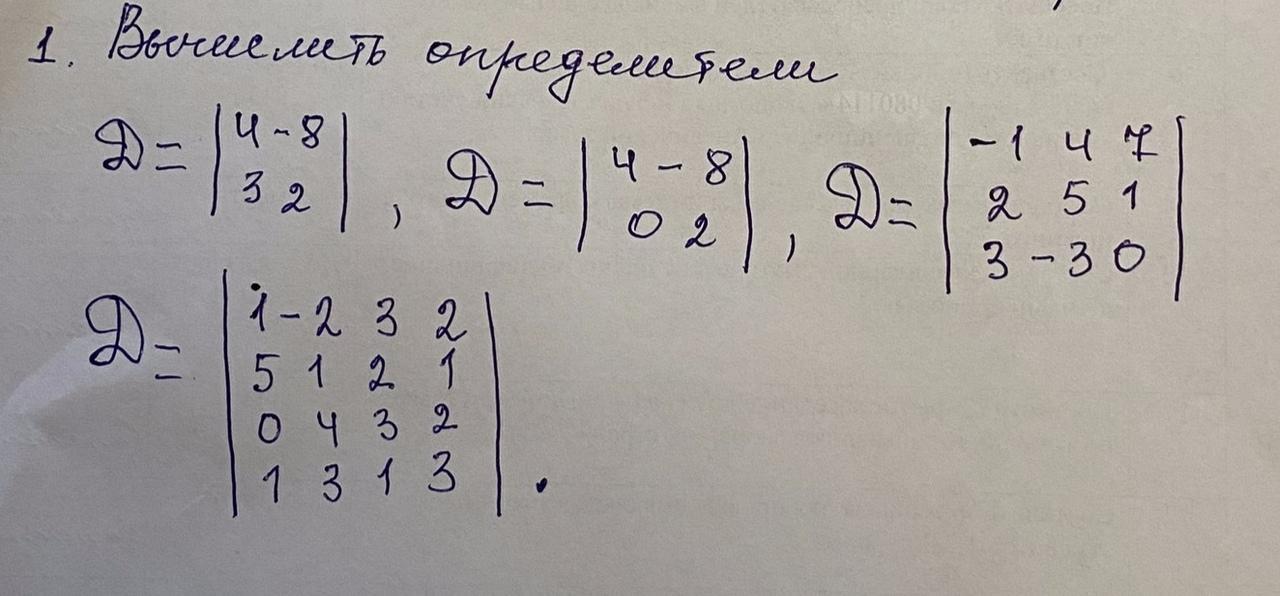 1. Вычислить определители
D = | 4 -8 | , D = | 4 - 8 | , D = | -1 4 7 |
| 3 2 | | 0 2 | | 2 5 1 |
| 3 -3 0 |
D = | 1 -2 3 2 |
| 5 1 2 1 |
| 0 4 3 2 |
| 1 3 1 3 | .